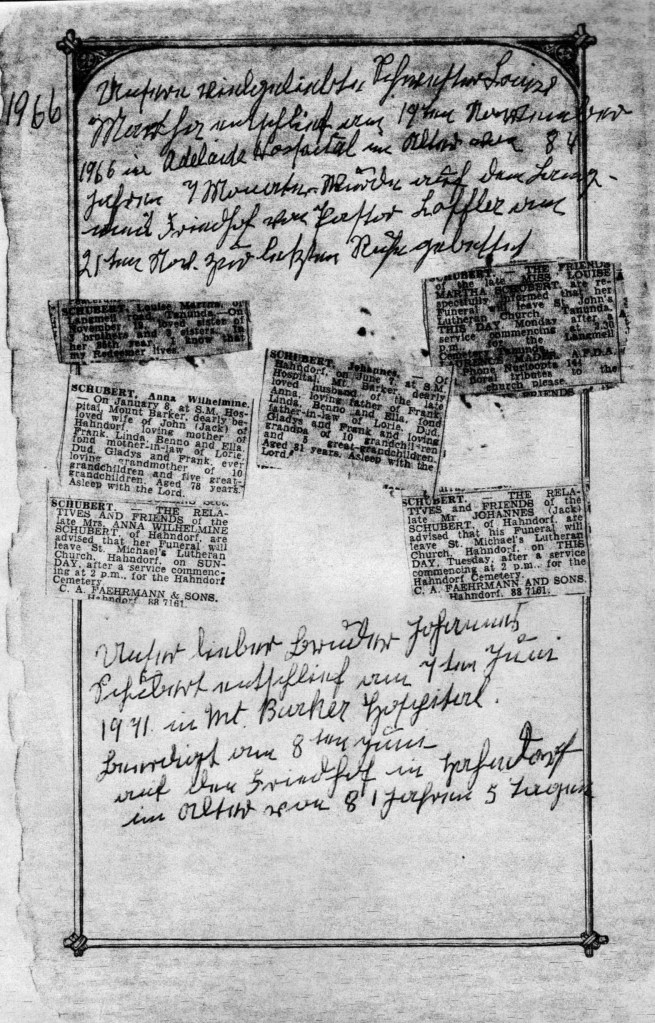 1966
Unsere vielgeliebte Schwester Louise
Martha entschlief am 19ten November
1966 in Adelaide Hospital im Alter von 84
Jahren 7 Monaten. Wurde auf dem Lang-
meil Friedhof von Pastor Löffler am
21ten Nov. zur letzten Ruhe gebettet
SCHUBERT, Louise Martha, of
Tanunda.—On
November loved sister of
brothers and sisters in
her 85th year. I know that
my Redeemer lives.
SCHUBERT. — THE FRIENDS
of the late MISS LOUISE
MARTHA SCHUBERT, are re-
spectfully informed that her
Funeral will leave St. John's
Lutheran Church, Tanunda,
THIS DAY, Monday, after a
service commencing at 2.30
p.m. for the Langmeil
Cemetery, Tanunda.
A.F.D.A.
Phone Nuriootpa
floral tributes to the
church please.
FRIENDS
SCHUBERT, Johannes. — Of
Hahndorf, on June 7, at S.M.
Hospital, Mt. Barker, dearly
loved husband of the late
Anna, loving father of Frank,
Linda, Benno and Ella, fond
father-in-law of Lorie, Dud,
Gladys and Frank and loving
grandpa of 10 grandchildren
and 5 great-grandchildren.
Aged 81 years. Asleep with the
Lord.
SCHUBERT, Anna Wilhelmine.
— On January 8, at S.M. Hos-
pital, Mount Barker, dearly be-
loved wife of John (Jack) of
Hahndorf, loving mother of
Frank, Linda, Benno and Ella,
fond mother-in-law of Lorie,
Dud, Gladys and Frank, ever
loving grandmother of 10
grandchildren and five great-
grandchildren. Aged 78 years.
Asleep with the Lord.
SCHUBERT. — THE RELA-
TIVES AND FRIENDS of the
late Mrs. ANNA WILHELMINE
SCHUBERT, of Hahndorf, are
advised that her Funeral will
leave St. Michael's Lutheran
Church, Hahndorf, on SUN-
DAY, after a service commenc-
ing at 2 p.m., for the Hahndorf
Cemetery.
C. A. FAEHRMANN & SONS.
Hahndorf. 88 7161.
SCHUBERT. — THE RELA-
TIVES AND FRIENDS of the
late Mr. JOHANNES (Jack)
SCHUBERT, of Hahndorf, are
advised that his Funeral will
leave St. Michael's Lutheran
Church, Hahndorf, on THIS
DAY, Tuesday, after a service
commencing at 2 p.m., for the
Hahndorf Cemetery.
C. A. FAEHRMANN AND SONS.
Hahndorf. 88 7161.
Unser lieber Bruder Johannes
Schubert entschlief am 7ten Juni
1971. in Mt. Barker Hospital.
Beerdigt am 8ten Juni
auf den Friedhof in Hahndorf
im Alter von 81 Jahren 5 Tagen